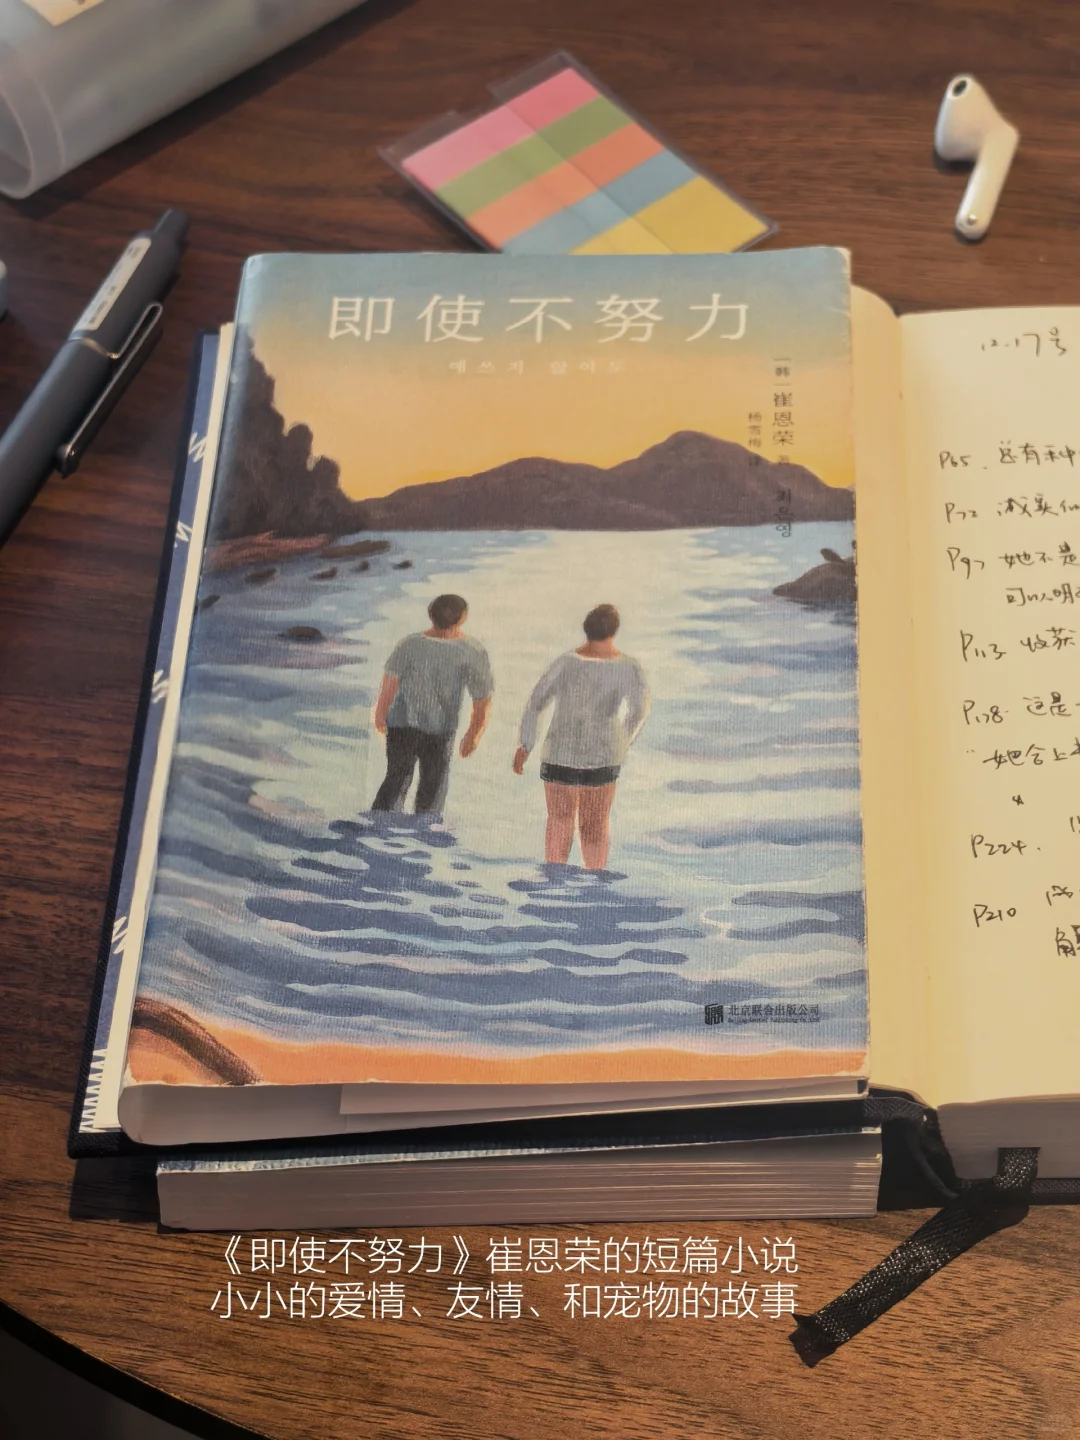 即使不努力
애쓰지 않아도
[韩] 崔恩荣 著
杨雪梅 译
최은영
北京联合出版公司
12.17号
P65. 总有一种
P72
P97 她不是
可以明
P113 收获
P178. 这是一
"她合上
P224.
P210
《即使不努力》崔恩荣的短篇小说
小小的爱情、友情、和宠物的故事